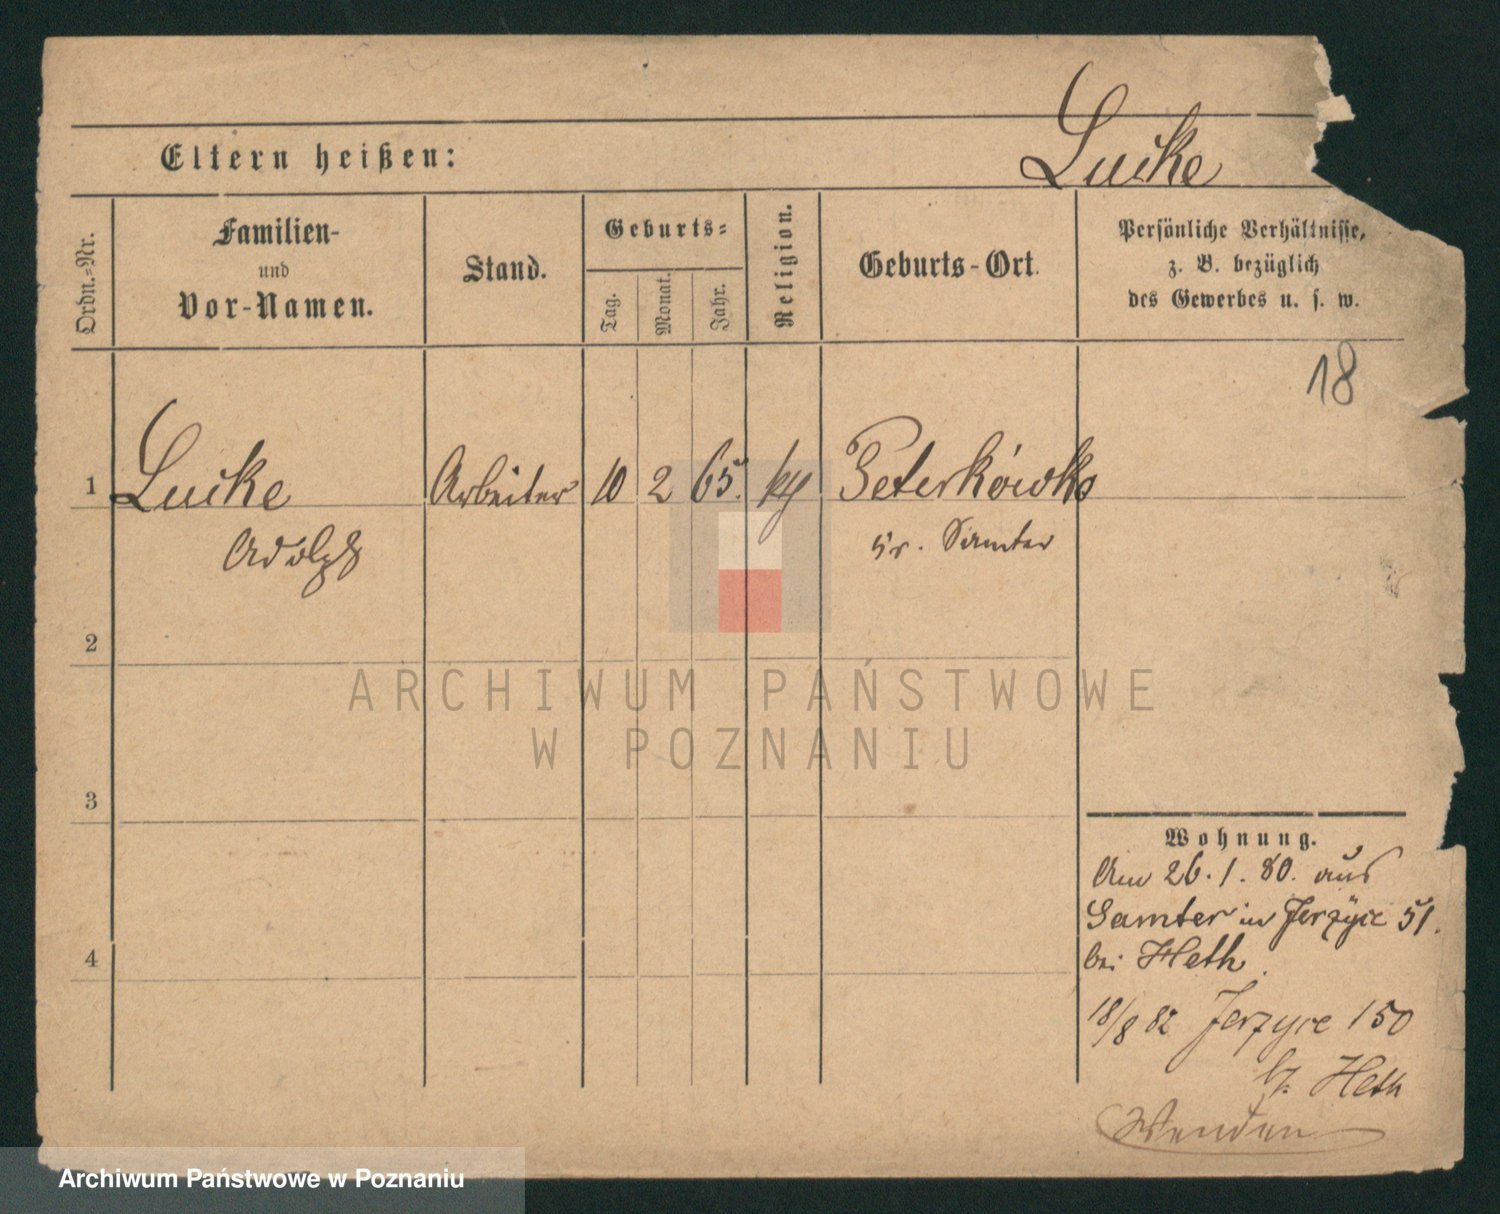 Lucke
Eltern heißen:
Ordn.=Nr.
Familien-
und
Vor-Namen.
Stand.
Geburts=
Tag.
Monat.
Jahr.
Religion.
Geburts-Ort.
Persönliche Verhältnisse,
z. B. bezüglich
des Gewerbes u. s. w.
18
1 Lucke Arbeiter 10 2 65. Peterkówko
Adolph Kr. Samter
2
3
4
ARCHIWUM PAŃSTWOWE
W POZNANIU
Wohnung.
Am 26.1.80. aus
Samter in Jerzyce 51.
bei Heth.
18/8 82 Jerzyce 150
b/. Heth
Wenden
Archiwum Państwowe w Poznaniu